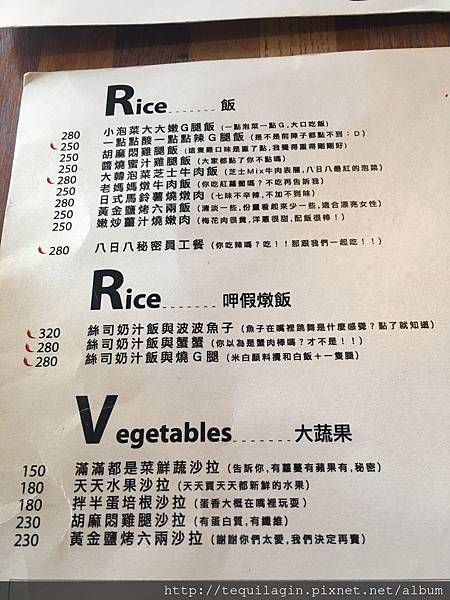 Rice 飯
280 小泡菜大大嫩G腿飯 (一點泡菜一點G,大口吃飯)
250 一點點酸一點點辣G腿飯 (是不是前陣子都點不到:D)
250 胡麻悶雞腿飯 (這隻雞口味是重了點,我覺得重得剛剛好)
250 醬燒蜜汁雞腿飯 (大家都點了你不點嗎)
280 大韓泡菜芝士牛肉飯 (芝士Mix牛肉表層,八日八最紅的泡菜)
250 老媽媽燉牛肉飯 (你吃紅蘿蔔嗎?不吃再告訴我)
250 日式馬鈴薯燒燉肉 (七味不辛辣,不加不到味)
280 黃金鹽烤六兩飯 (清淡一些,份量看起來少一些,適合漂亮女性)
250 嫩炒薑汁燒嫩肉 (梅花肉很貴,洋蔥很甜,配飯很棒!)
280 八日八秘密員工餐 (你吃辣嗎?吃!!那跟我們一起吃!!)
Rice 呷假燉飯
320 絲司奶汁飯與波波魚子 (魚子在嘴裡跳舞是什麼感覺?點了就知道)
280 絲司奶汁飯與蟹蟹 (你以為是蟹肉棒嗎?才不是!!)
280 絲司奶汁飯與燒G腿 (米白顏料攪和白飯+一隻腿)
Vegetables 大蔬果
150 滿滿都是菜鮮蔬沙拉 (告訴你,有蘿蔓有蘋果有,秘密)
180 天天水果沙拉 (天天買天天都新鮮的水果)
180 拌半蛋培根沙拉 (蛋香大概在嘴裡玩耍)
230 胡麻悶雞腿沙拉 (有蛋白質,有纖維)
230 黃金鹽烤六兩沙拉 (謝謝你們太愛,我們決定再賣)
http://tequilagin.pixnet.net/album